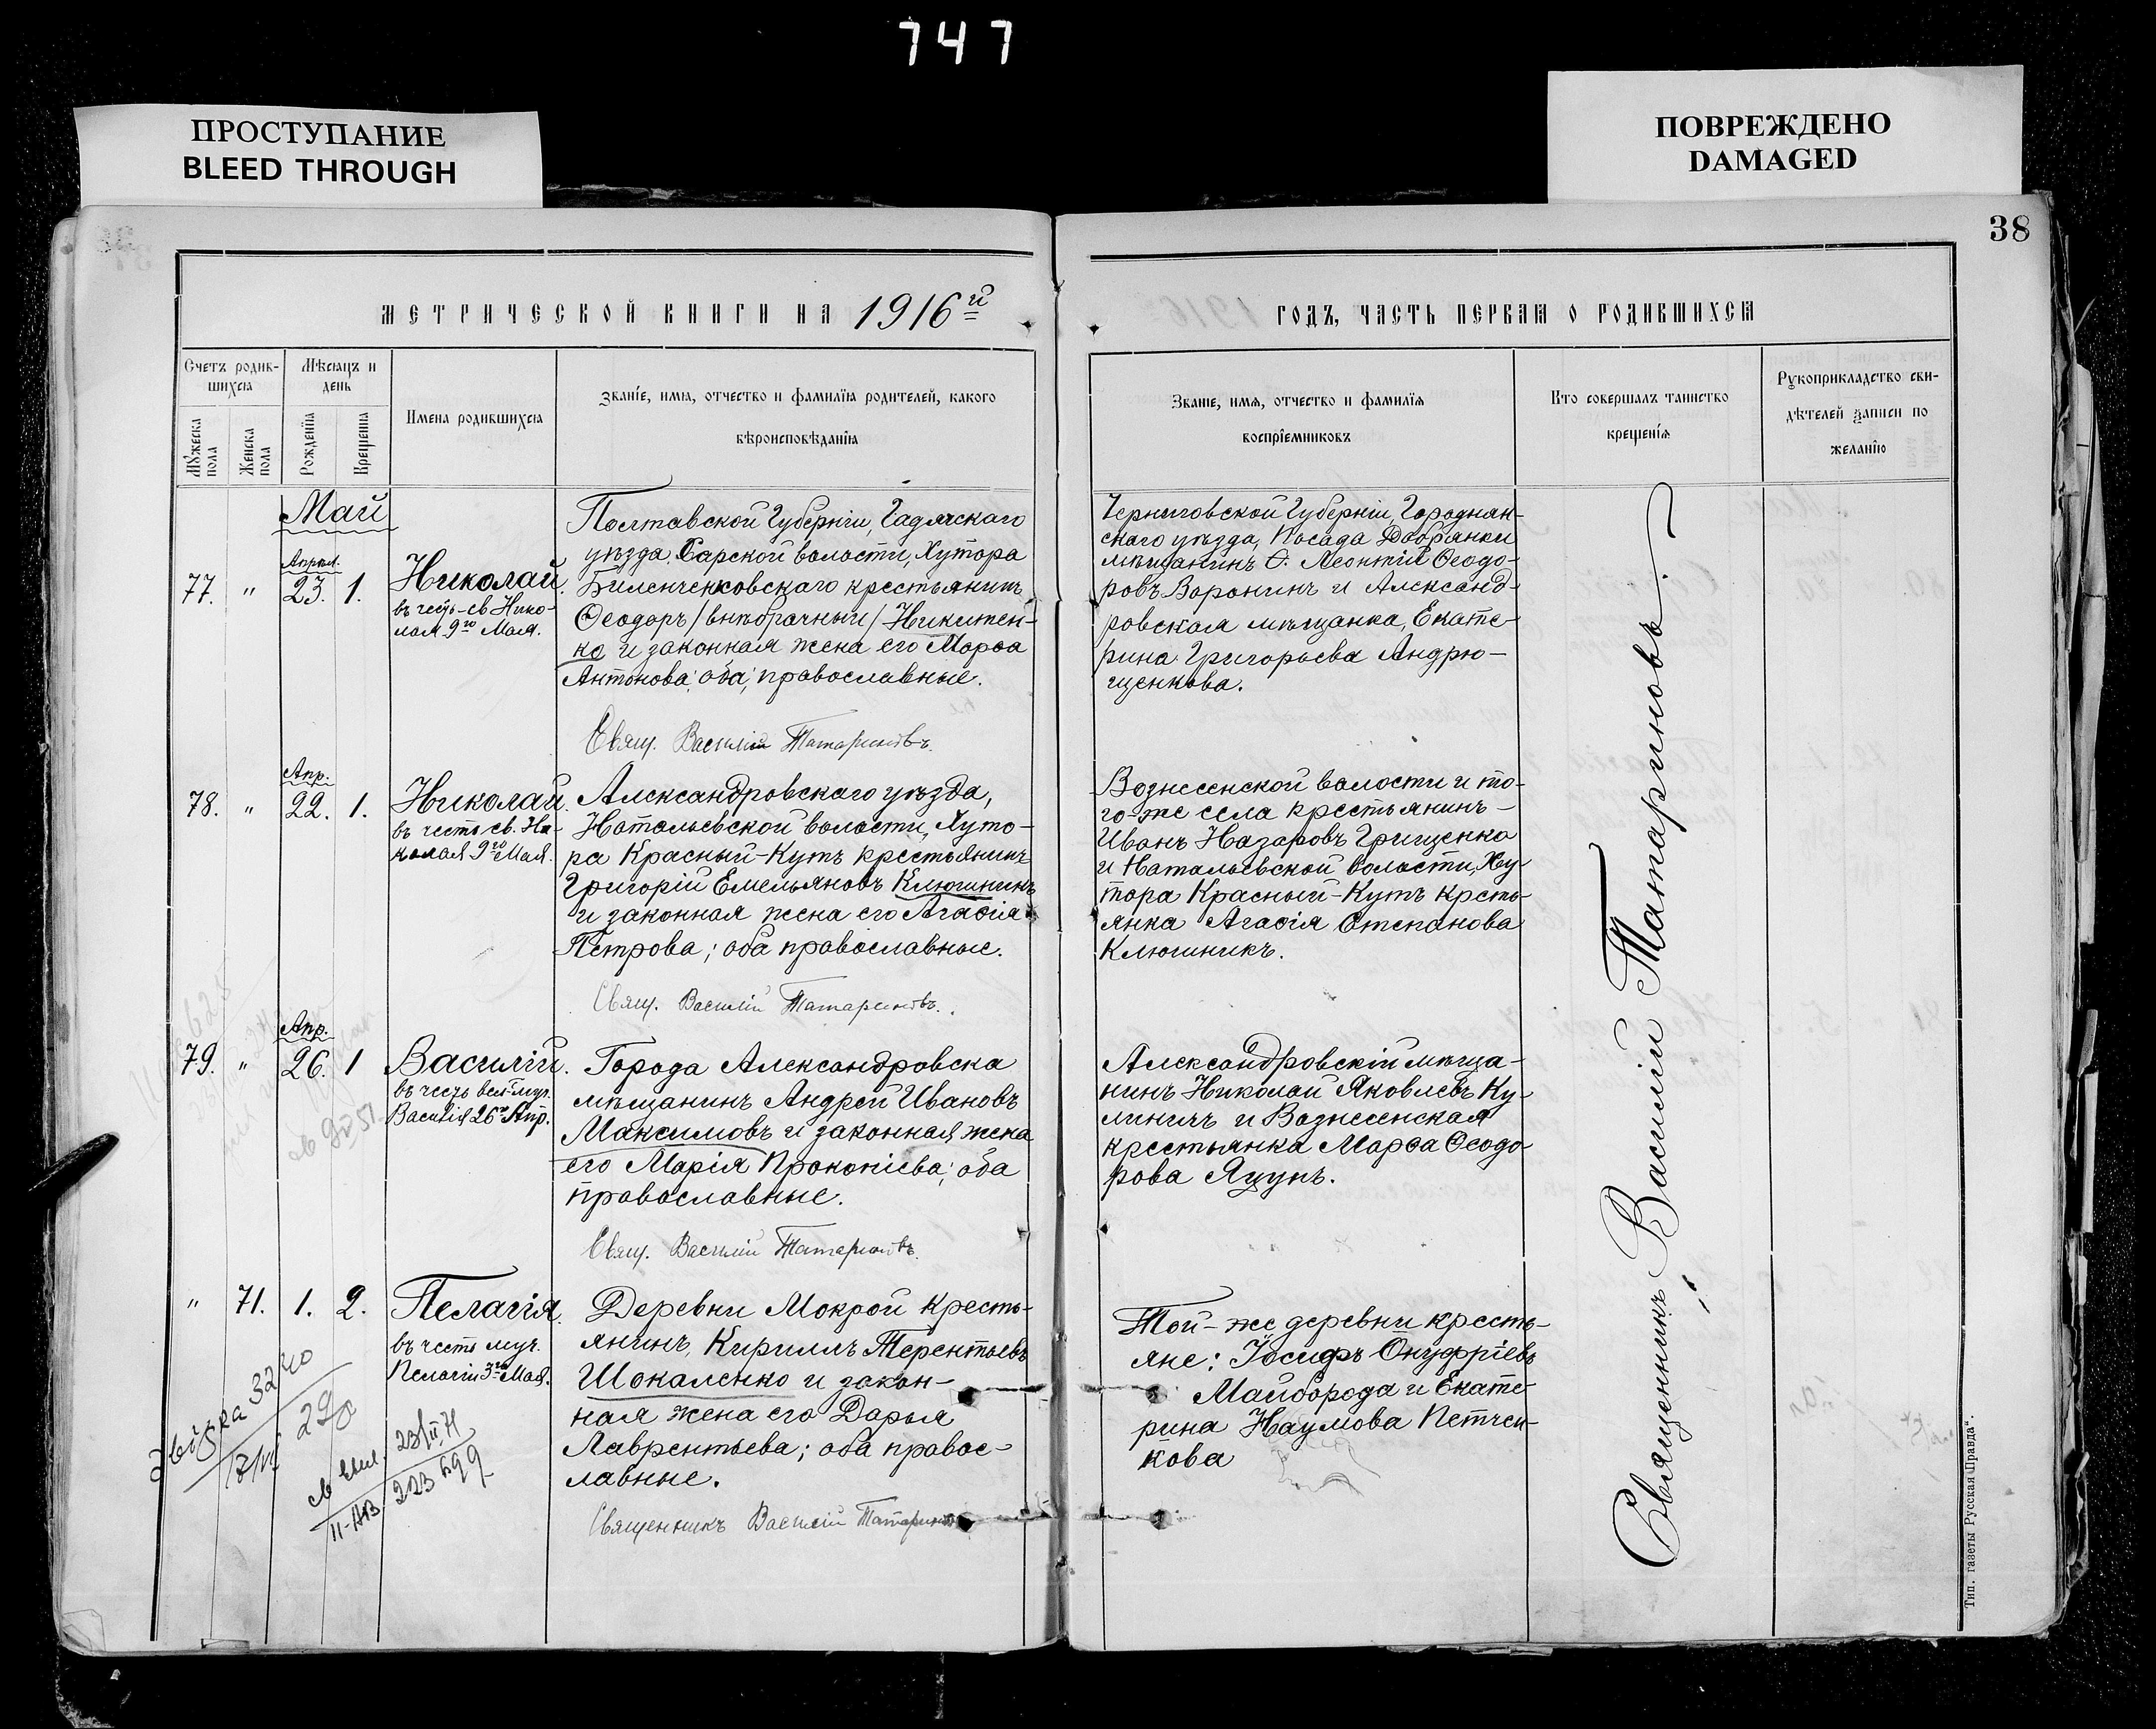 747
ПРОСТУПАНИЕ
BLEED THROUGH
ПОВРЕЖДЕНО
DAMAGED
38
МЕТРИЧЕСКОЙ КНИГИ НА 1916й
ГОДЪ, ЧАСТЬ ПЕРВАЯ О РОДИВШИХСЯ
Счетъ родив-
шихся
Мѣсяцъ и
день
Мужеска
пола
Женска
пола
Рожденія
Крещенія
Имена родившихся
Званіе, имя, отчество и фамилія родителей, какого
вѣроисповѣданія
Званіе, имя, отчество и фамилія
воспріемниковъ
Кто совершалъ таинство
крещенія
Рукоприкладство сви-
дѣтелей записи по
желанію
Май
77. " Апрѣл. 23. 1.
Николай.
въ честь св Нико-
лая 9го Мая.
Полтавской Губерніи, Гадячскаго
уѣзда, Сарской волости, Хутора
Биленченковскаго крестьянинъ
Ѳеодоръ /внѣбрачный/ Никитен-
ко и законная жена его Марѳа
Антонова; оба православные.
Свящ. Василій Татариновъ.
Черниговской Губерніи, Городнян-
скаго уѣзда, Посада Добрянки
мѣщанинъ Леонтій Ѳеодо-
ровъ Воронинъ и Александ-
ровская мѣщанка, Екате-
рина Григорьева Андрю-
щенкова.
78. " Апр. 22. 1.
Николай.
въ честь св. Ни-
колая 9го Мая.
Александровскаго уѣзда,
Натальевской волости, Хуто-
ра Красный-Кутъ крестьянинъ
Григорій Емельяновъ Ключникъ
и законная жена его Агаѳія
Петрова; оба православные.
Свящ. Василій Татариновъ.
Вознесенской волости и то-
го-же села крестьянинъ-
Иванъ Назаровъ Грищенко
и Натальевской волости, Ху-
тора Красный-Кутъ кресть-
янка Агаѳія Степанова
Ключникъ.
79. " Апр. 26. 1
Василій.
Василія 26го Апр.
Города Александровска
мѣщанинъ Андрей Ивановъ
Максимовъ и законная жена
его Марія Прокопіева; оба
православные.
Свящ. Василій Татариновъ.
Александровскій мѣща-
нинъ Николай Яковлевъ Ку-
линичъ и Вознесенская
крестьянка Марѳа Ѳеодо-
рова Яцунъ.
" 71. 1. 2.
Пелагія.
въ честь муч.
Пелагіи 3го Мая.
Деревни Мокрой кресть-
янинъ, Кириллъ Терентьевъ
Шокаленко и закон-
ная жена его Дарья
Лаврентьева; оба правос-
лавные.
Священникъ Василій Татариновъ
Той-же деревни кресть-
яне: Іосифъ Онуфріевъ
Майборода и Екате-
рина Наумова Петчен-
кова
Священникъ Василій Татариновъ.
Тип. газеты Русская Правда".